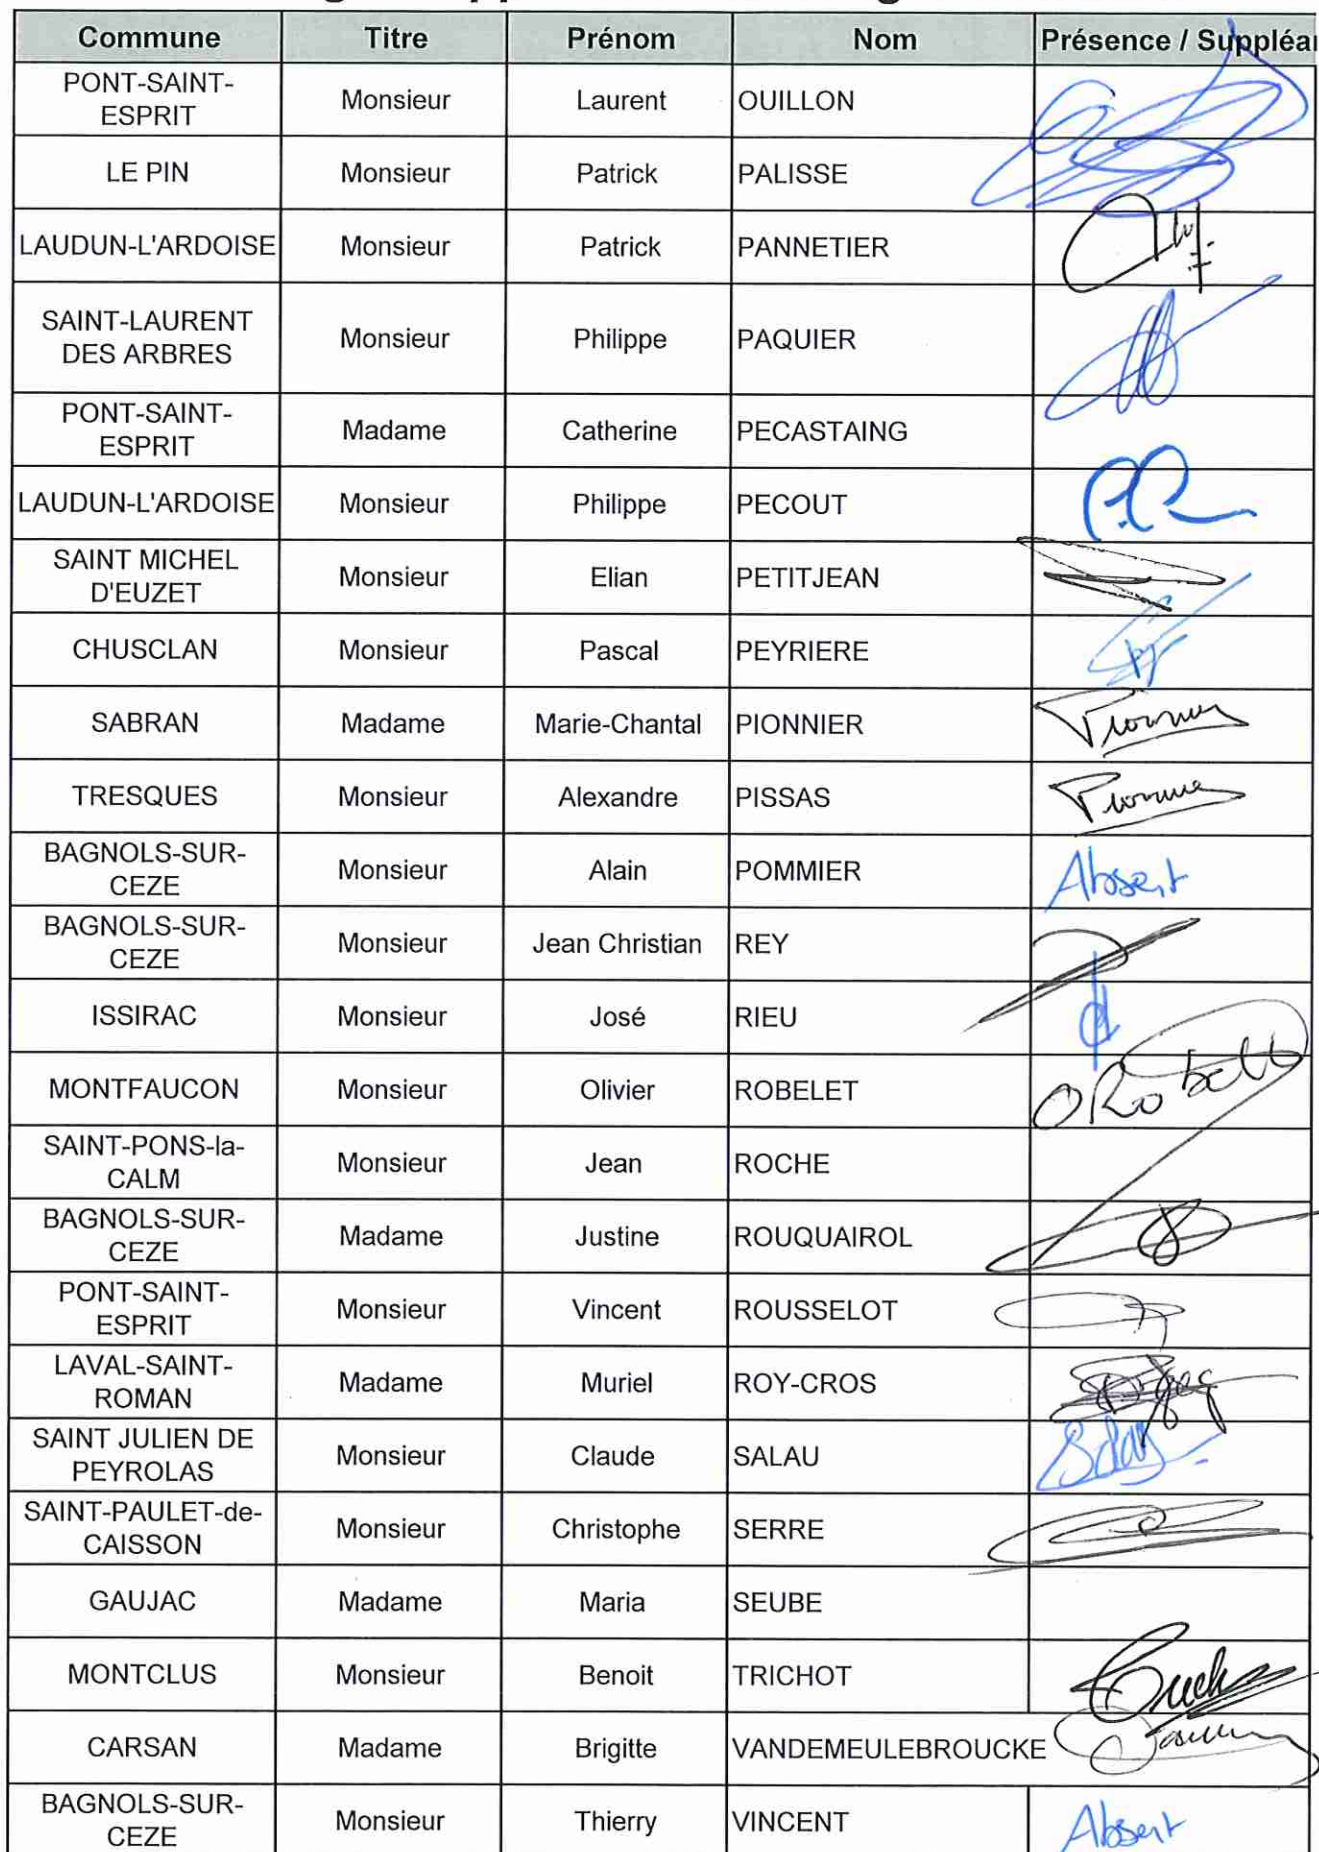 Commune Titre Prénom Nom Présence / Suppléa
PONT-SAINT-
ESPRIT Monsieur Laurent OUILLON
LE PIN Monsieur Patrick PALISSE
LAUDUN-L'ARDOISE Monsieur Patrick PANNETIER
SAINT-LAURENT
DES ARBRES Monsieur Philippe PAQUIER
PONT-SAINT-
ESPRIT Madame Catherine PECASTAING
LAUDUN-L'ARDOISE Monsieur Philippe PECOUT
SAINT MICHEL
D'EUZET Monsieur Elian PETITJEAN
CHUSCLAN Monsieur Pascal PEYRIERE
SABRAN Madame Marie-Chantal PIONNIER
TRESQUES Monsieur Alexandre PISSAS
BAGNOLS-SUR-
CEZE Monsieur Alain POMMIER Absent
BAGNOLS-SUR-
CEZE Monsieur Jean Christian REY
ISSIRAC Monsieur José RIEU
MONTFAUCON Monsieur Olivier ROBELET
SAINT-PONS-la-
CALM Monsieur Jean ROCHE
BAGNOLS-SUR-
CEZE Madame Justine ROUQUAIROL
PONT-SAINT-
ESPRIT Monsieur Vincent ROUSSELOT
LAVAL-SAINT-
ROMAN Madame Muriel ROY-CROS
SAINT JULIEN DE
PEYROLAS Monsieur Claude SALAU
SAINT-PAULET-de-
CAISSON Monsieur Christophe SERRE
GAUJAC Madame Maria SEUBE
MONTCLUS Monsieur Benoit TRICHOT
CARSAN Madame Brigitte VANDEMEULEBROUCKE
BAGNOLS-SUR-
CEZE Monsieur Thierry VINCENT Absent